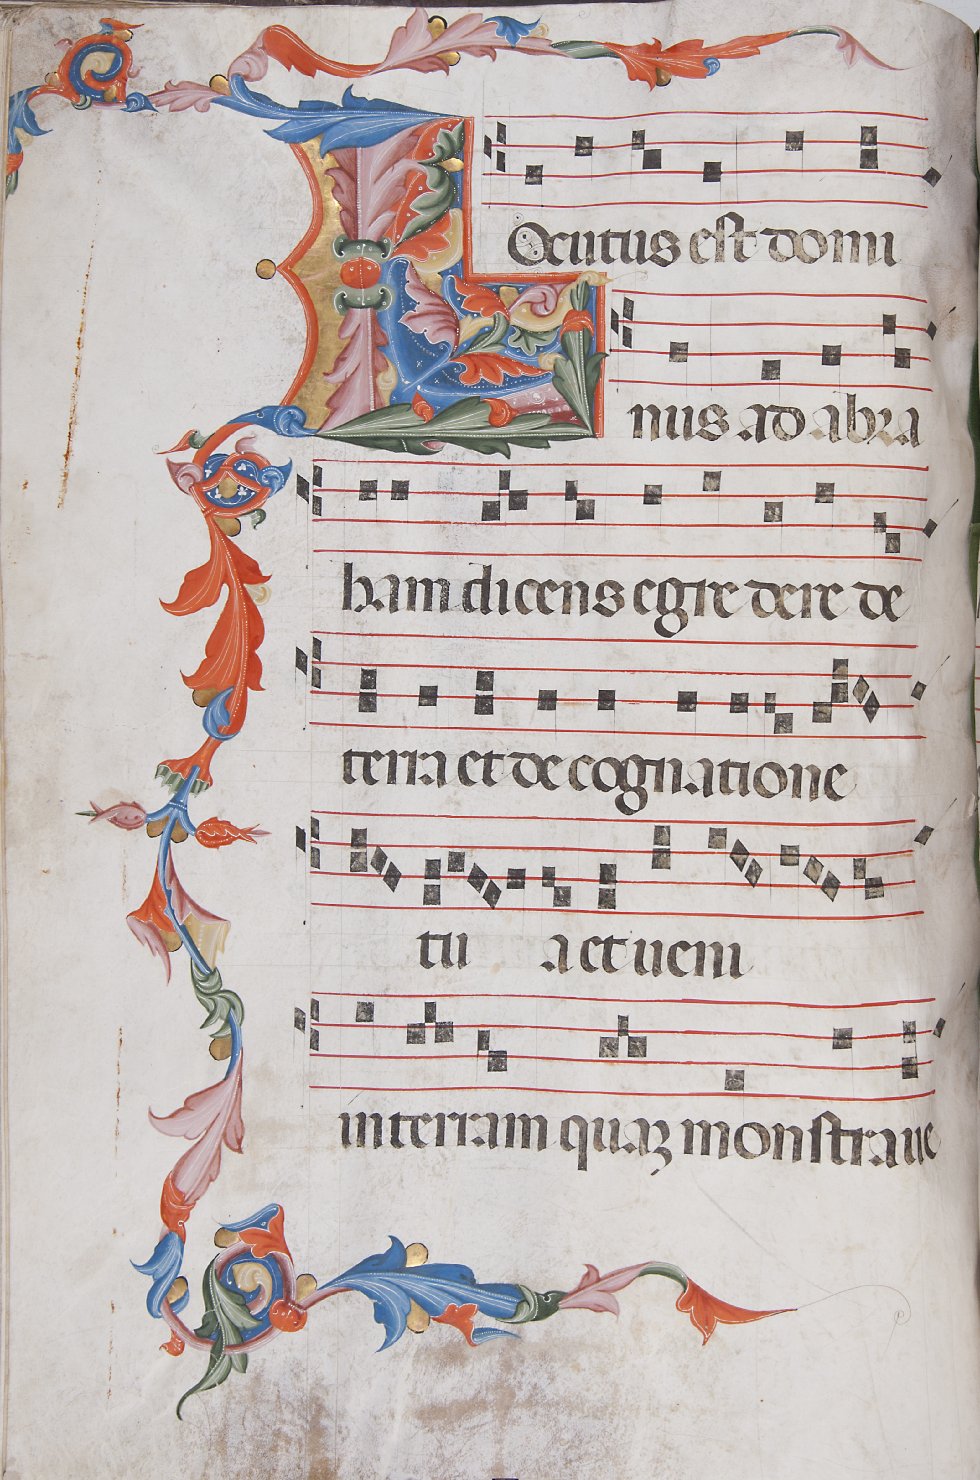 LOcutus est domi
nus ad abra
ham dicens egre dere de
terra et de cognatione
tu a et ueni
in terram quaʒ monstraue